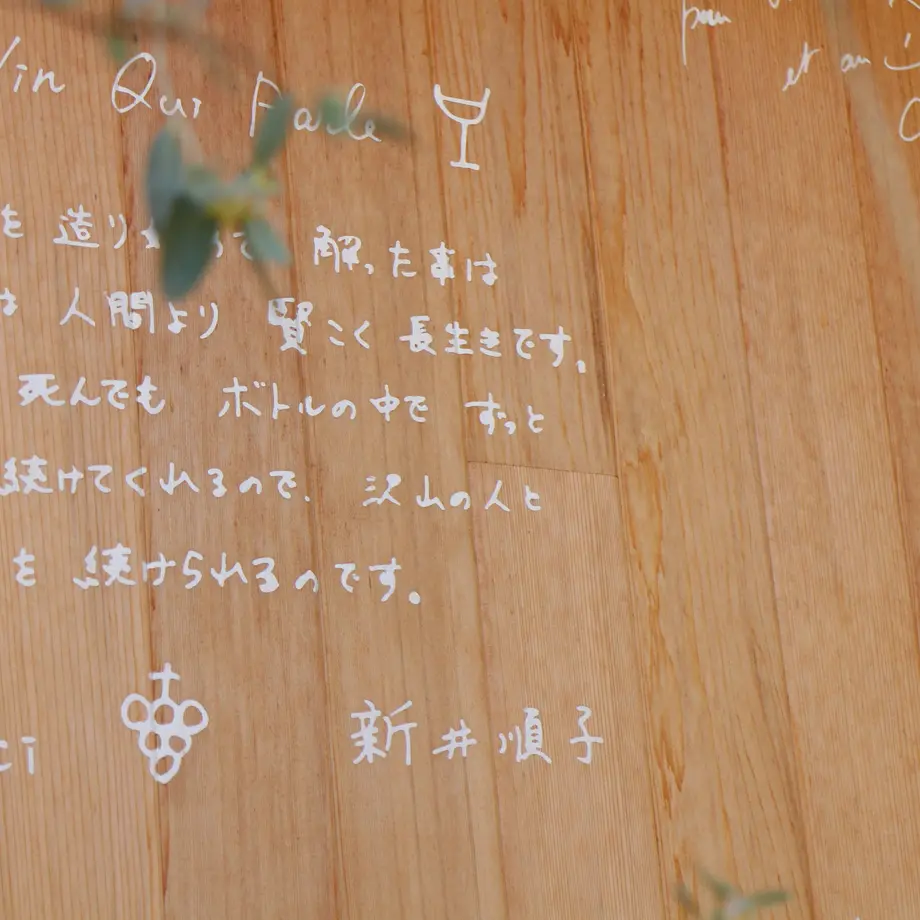 Vin Qui Parle
を造り
解った事は
は人間より 賢こく 長生きです。
死んでも ボトルの中で ずっと
続けてくれるので、沢山の人と
を 続けられるのです。
ci 新井順子
pour
et au